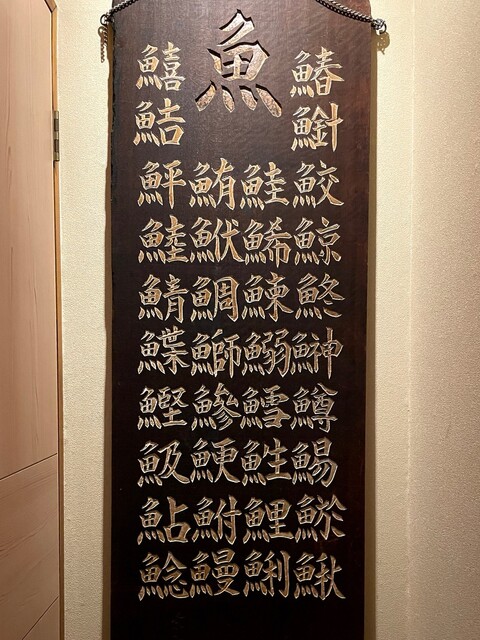 魚
鰆鮫鯨鮗鰰鱒鯣鰍
鮭鯑鰊鰯鱈鮏鯉鯏
鮪鮲鯛鰤鰺鯁鮒鰻
鱚鮚鮃鯥鯖鰈鰹魥鮎鯰